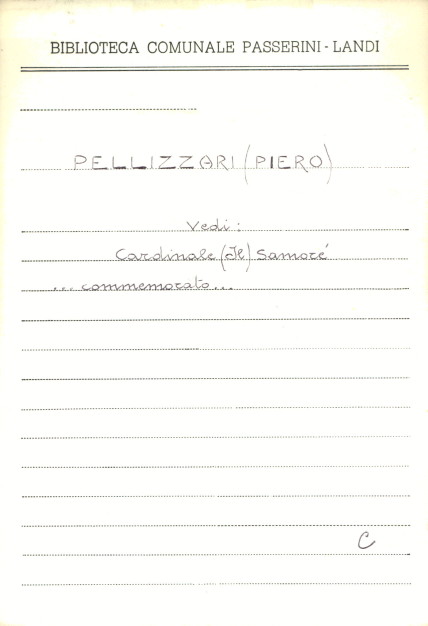 BIBLIOTECA COMUNALE PASSERINI - LANDI
PELLIZZARI (PIERO)
Vedi :
Cardinale (Il) Samoré
... commemorato...
C